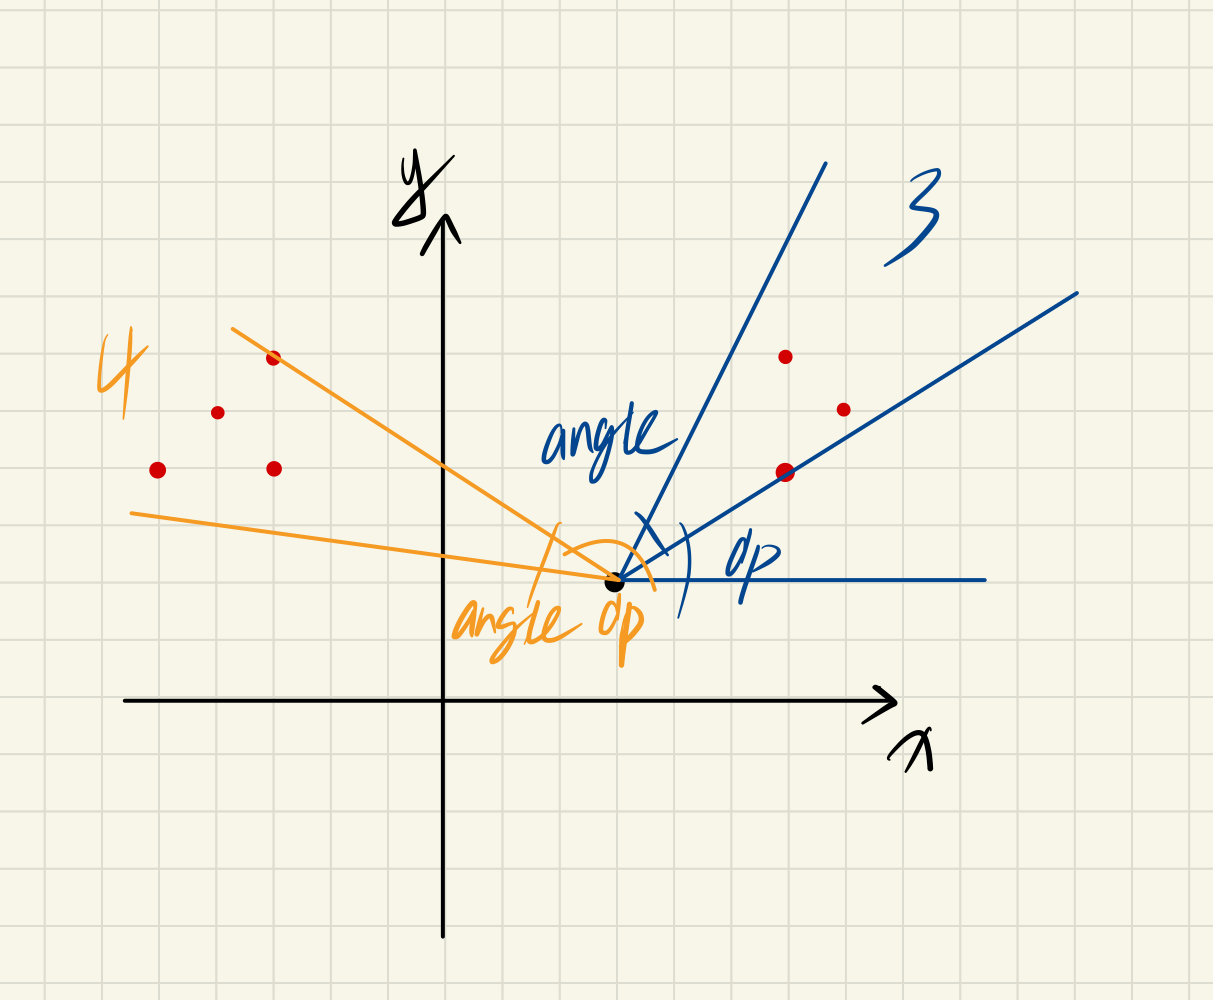 y
3
4
angle
dp
angle dp
x